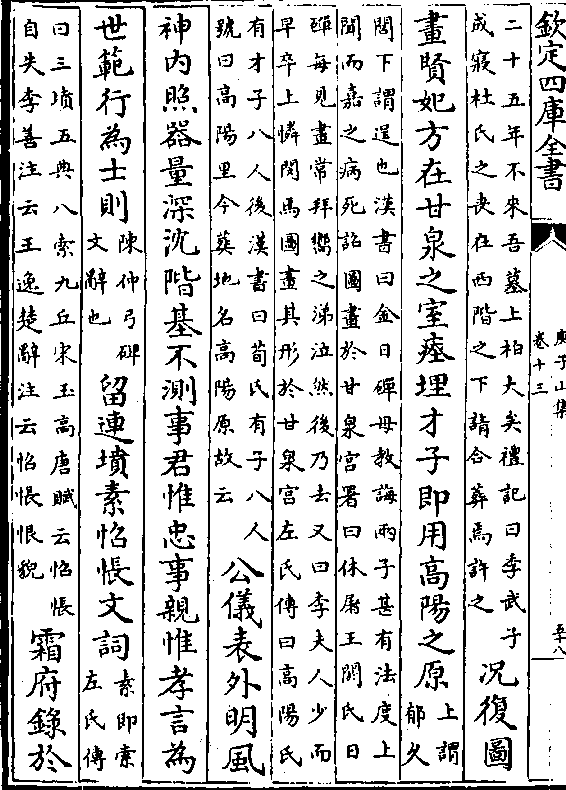 欽定四庫全書
庾子山集
卷十三
二十五年不來吾墓上柏大矣禮記曰季武子
成寢杜氏之喪在西階之下請合葬焉許之
况復圖
畫賢妃方在甘泉之室瘞埋才子即用高陽之原
上謂
郁久
閭下謂暹也漢書曰金日磾母教誨兩子甚有法度上
聞而嘉之病死詔圖畫於甘泉宮署曰休屠王閼氏日
磾每見畫常拜嚮之涕泣然後乃去又曰李夫人少而
早卒上憐閔焉圖畫其形於甘泉宮左氏傳曰高陽氏
有才子八人後漢書曰荀氏有子八人
號曰高陽里今葬地名高陽原故云
公儀表外明風
神内照器量深沈階基不測事君惟忠事親惟孝言為
世範行為士則
陳仲弓碑
文辭也
留連墳素怊悵文詞
素即索
左氏傳
曰三墳五典八索九丘宋玉高唐賦云怊悵
自失李善注云王逸楚辭注云怊悵恨貌
霜府錄於